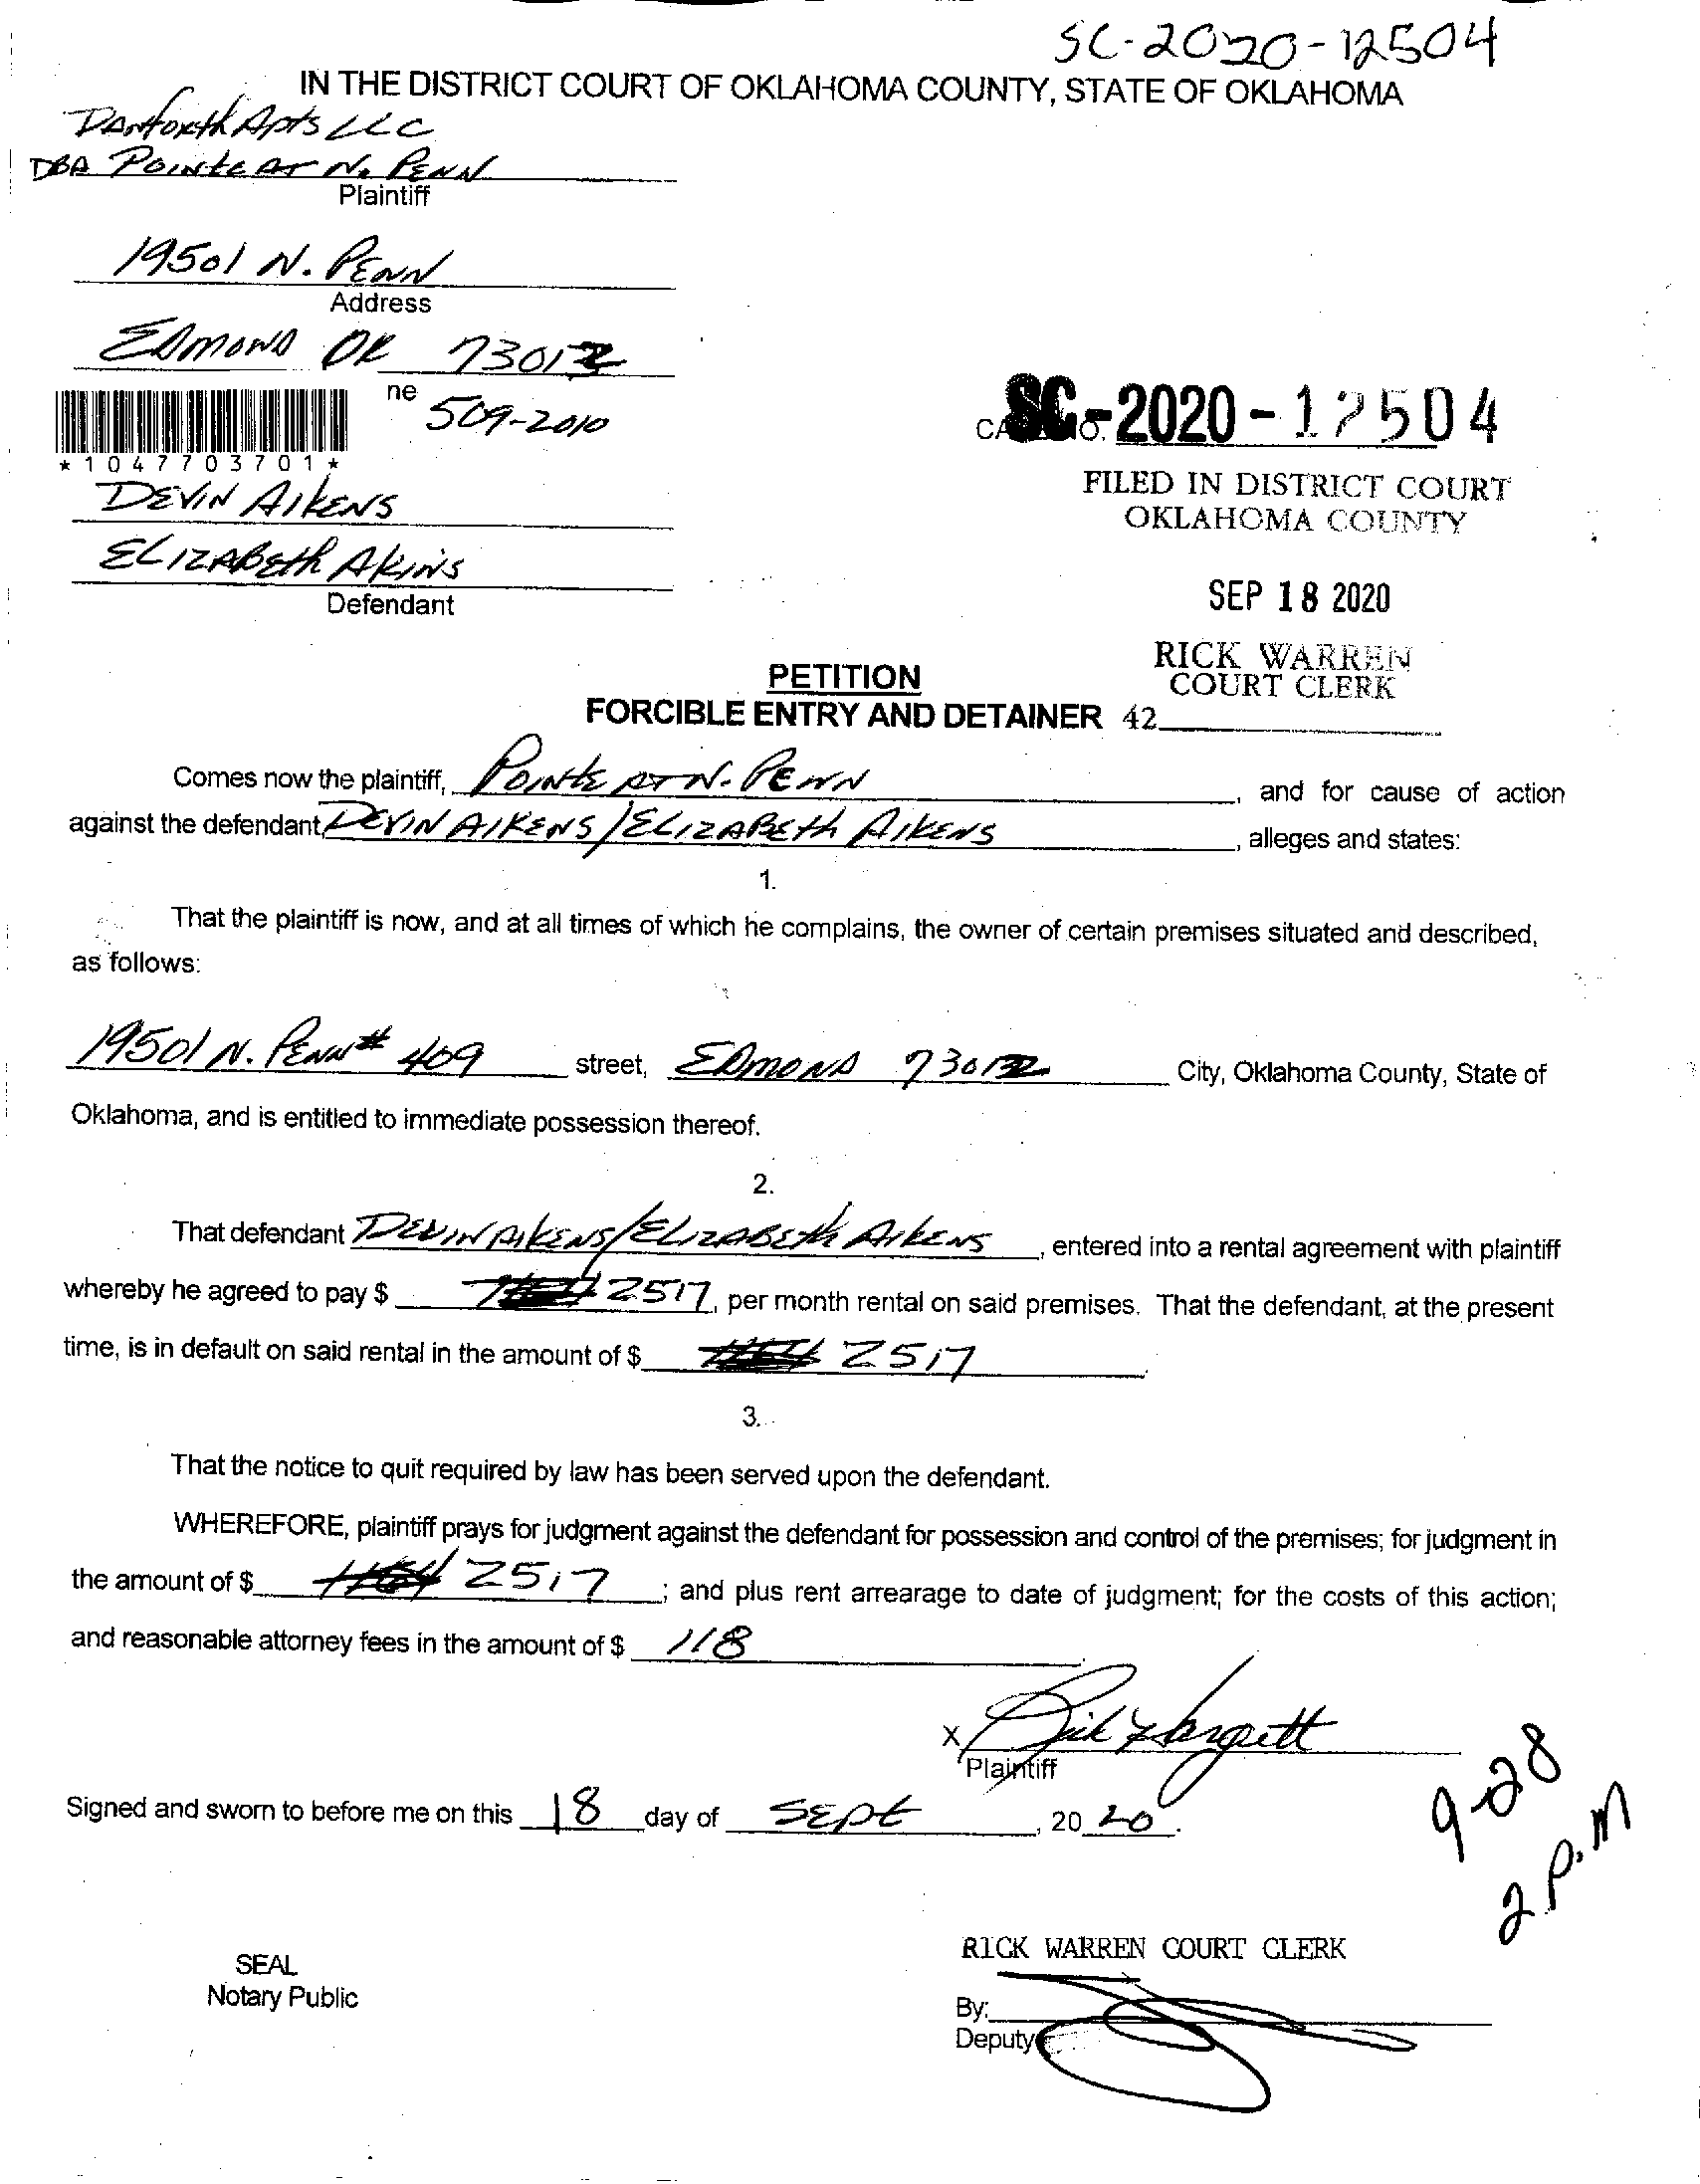 SC-2020-12504
IN THE DISTRICT COURT OF OKLAHOMA COUNTY, STATE OF OKLAHOMA
Danforth Apts LLC
DBA Pointe at N. Penn
Plaintiff
19501 N. Penn
Address
Edmond OK 73012
ne 509-2010
SC-2020-12504
*1047703701*
FILED IN DISTRICT COURT
OKLAHOMA COUNTY
Devin Aikens
Elizabeth Akins
Defendant
SEP 18 2020
RICK WARREN
COURT CLERK
PETITION
FORCIBLE ENTRY AND DETAINER 42
Comes now the plaintiff, Pointe at N. Penn, and for cause of action
against the defendant, Devin Aikens/Elizabeth Aikens, alleges and states:
1.
That the plaintiff is now, and at all times of which he complains, the owner of certain premises situated and described,
as follows:
19501 N. Penn # 409 street, Edmond 73012 City, Oklahoma County, State of
Oklahoma, and is entitled to immediate possession thereof.
2.
That defendant Devin Aikens/Elizabeth Aikens, entered into a rental agreement with plaintiff
whereby he agreed to pay $ 2517, per month rental on said premises. That the defendant, at the present
time, is in default on said rental in the amount of $ 2517.
3.
That the notice to quit required by law has been served upon the defendant.
WHEREFORE, plaintiff prays for judgment against the defendant for possession and control of the premises; for judgment in
the amount of $ 2517; and plus rent arrearage to date of judgment; for the costs of this action;
and reasonable attorney fees in the amount of $ 118.
X Rick Hargett
Plaintiff
Signed and sworn to before me on this 18 day of Sept, 2020.
9-28
2 p.m
RICK WARREN COURT CLERK
SEAL
Notary Public
By:
Deputy